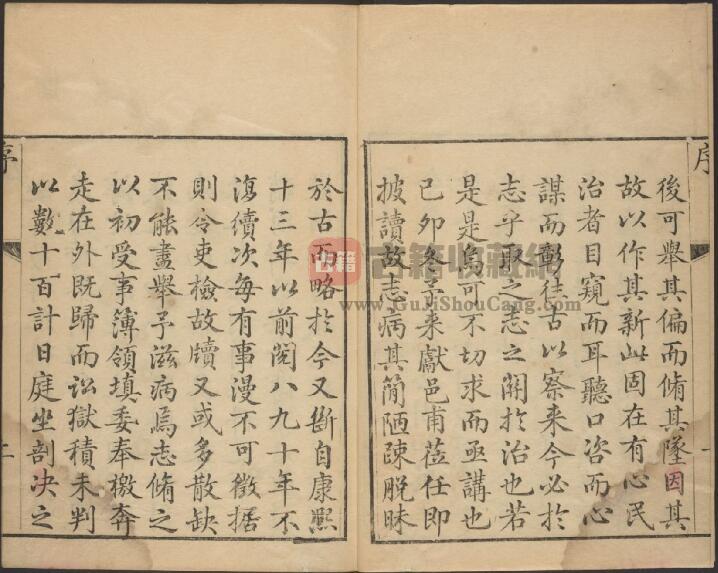 後可舉其偏而脩其墜因其
故以作其新此固在有心民
治者目窺而耳聽口咨而心
謀而彰往古以察來今必於
志乎取之志之關於治也若
是是烏可不切求而亟講也
己卯冬予來獻邑甫蒞任即
披讀故志病其簡陋疎脫昧
於古而略於今又斷自康熙
十三年以前閱八九十年不
復續次每有事漫不可徵据
則令吏檢故牘又或多散缺
不能盡舉予滋病焉志脩之
以初受事簿領填委奉檄奔
走在外既歸而訟獄積未判
以數十百計日庭坐剖决之
序
一
序
二
古籍
古籍收藏網
www.GuJiShouCang.com